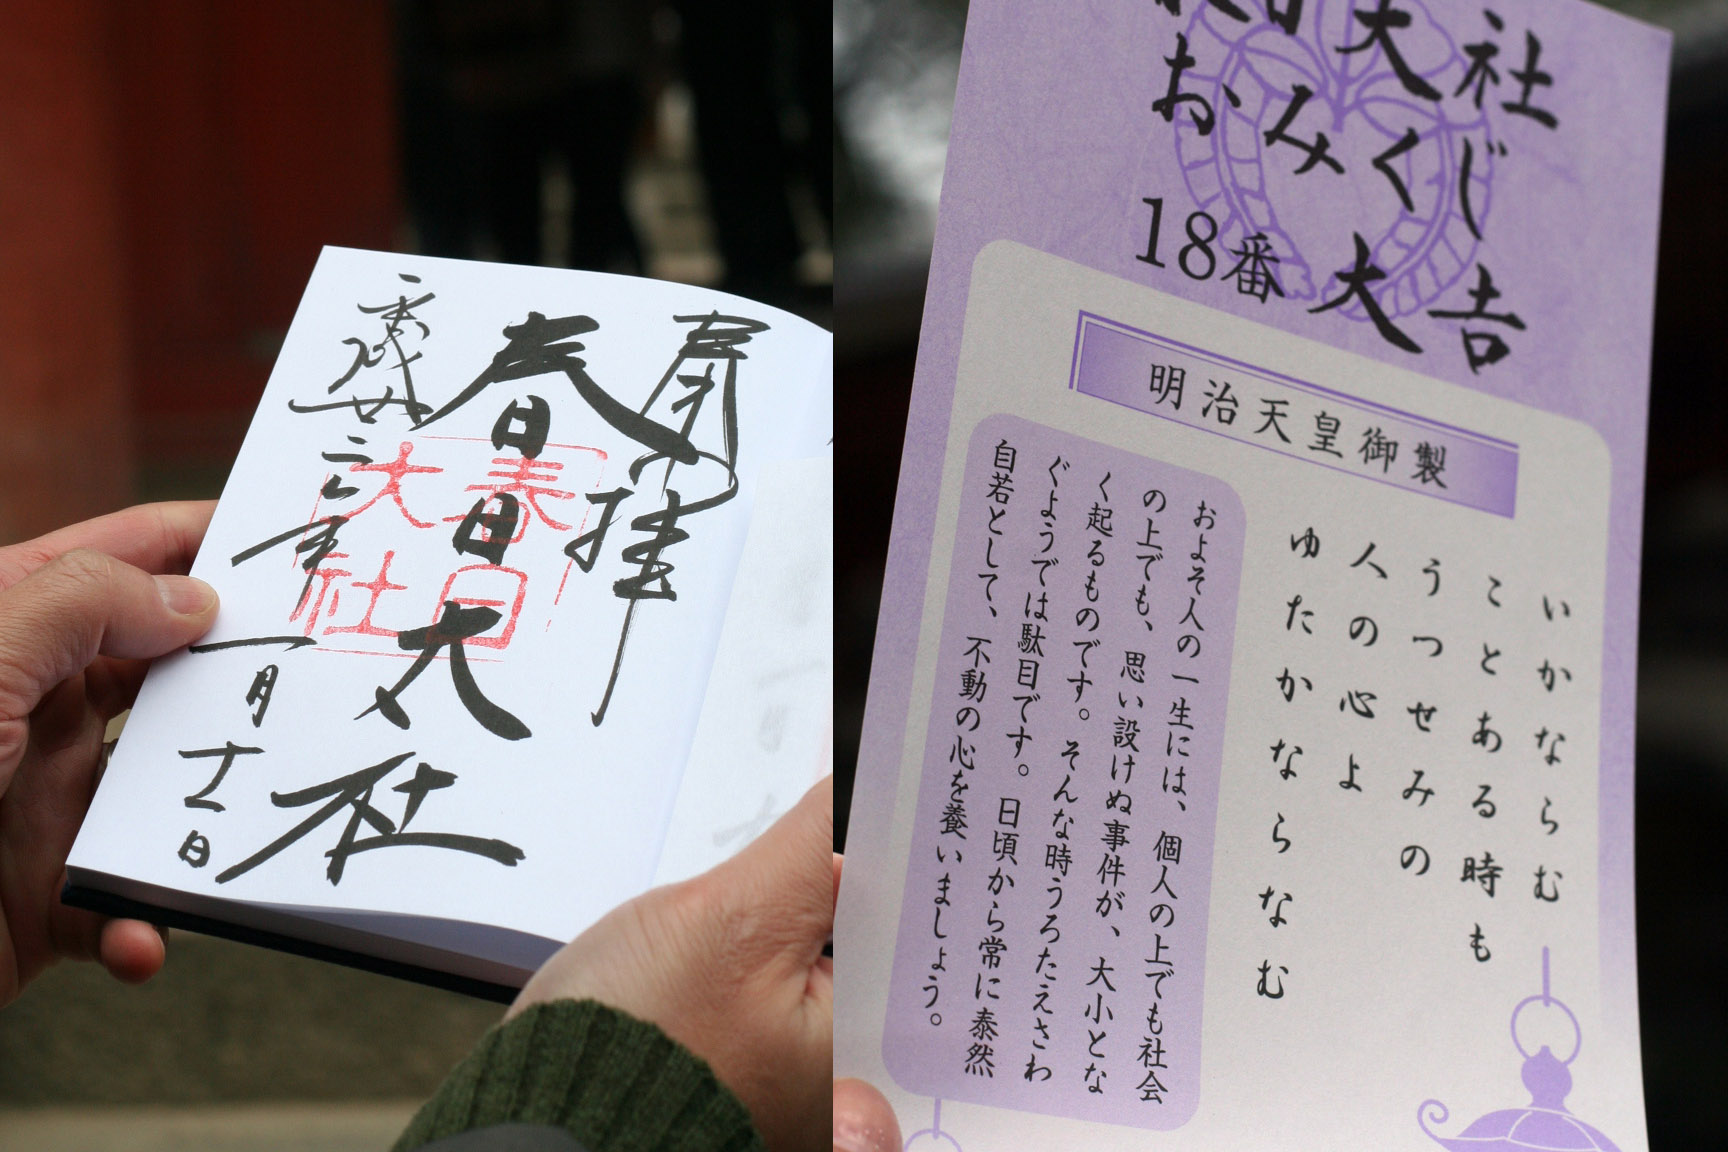 奉拝
春日大社
平成廿三年一月十一日
春日
大社
春日大社
おみくじ
18番 大吉
明治天皇御製
いかならむ
ことある時も
うつせみの
人の心よ
ゆたかならなむ
およそ人の一生には、個人の上でも社会
の上でも、思い設けぬ事件が、大小とな
く起るものです。そんな時うろたえさわ
ぐようでは駄目です。日頃から常に泰然
自若として、不動の心を養いましょう。